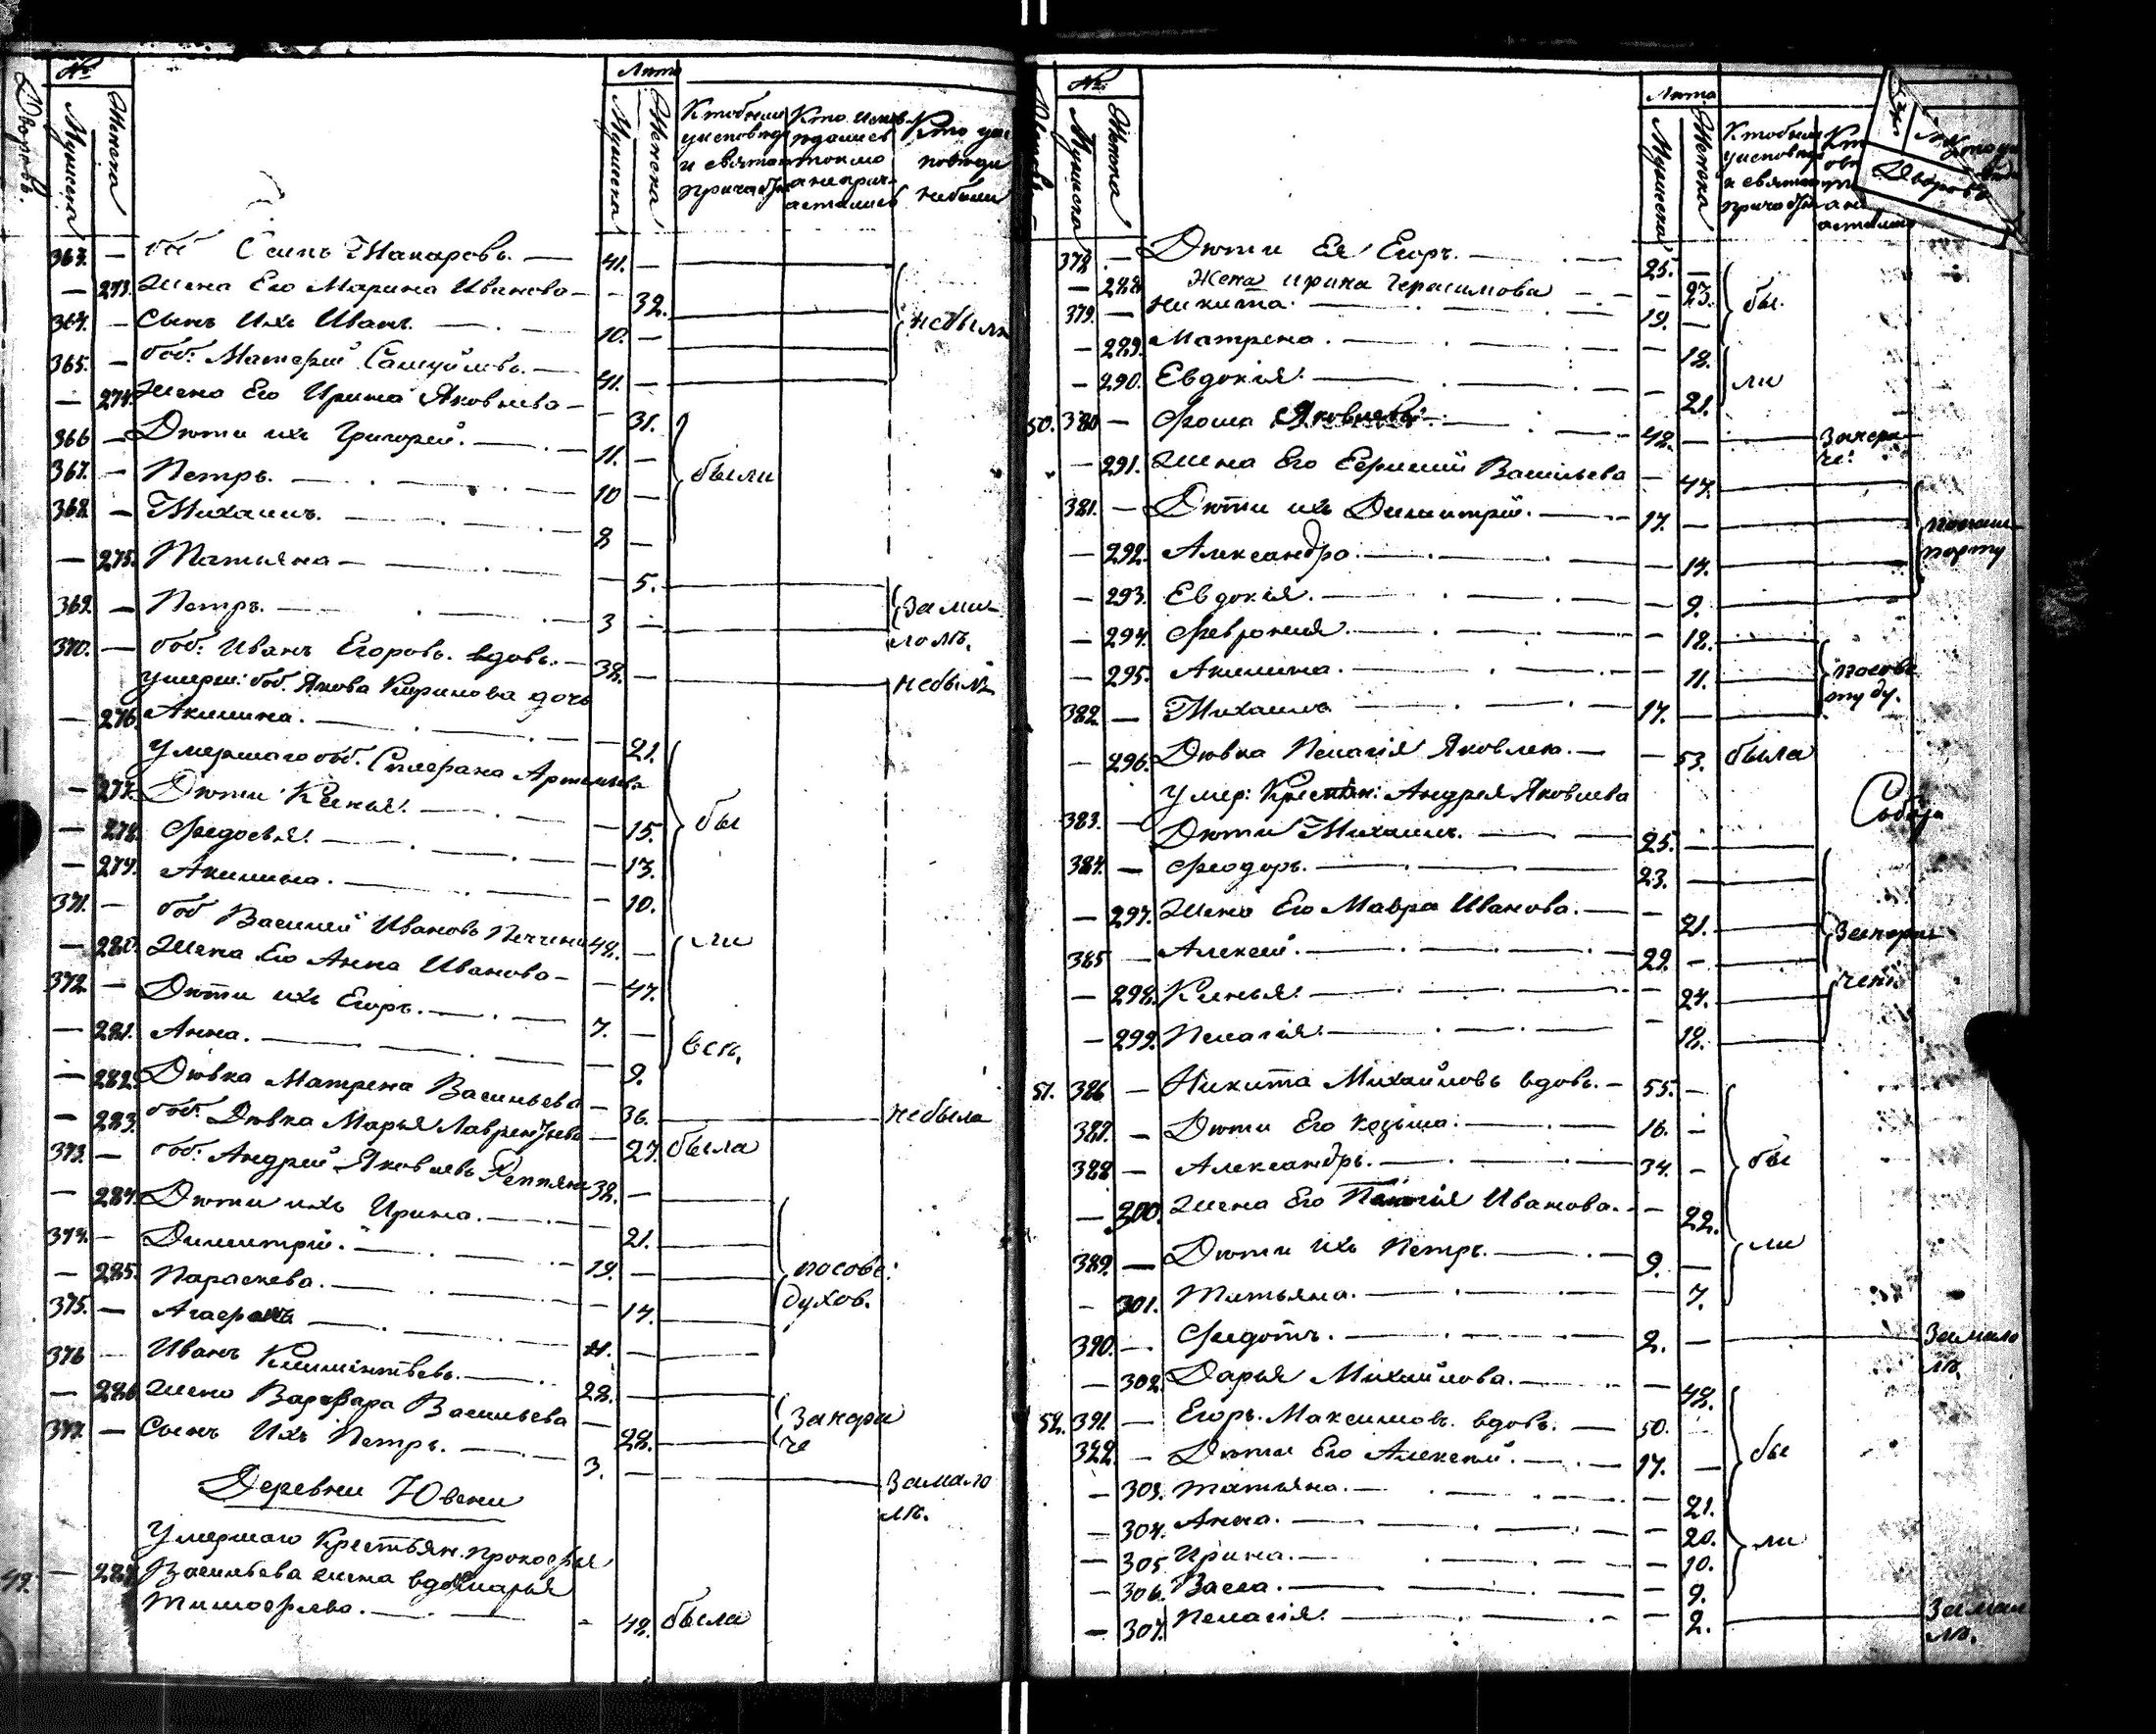 №
Лѣта
Дворовъ.
Мужеска
Женска
Мужеска
Женска
Кто были у исповѣди и святаго причастія
Кто исповѣдался токмо а не причастился
Кто у исповѣди не были
363. — боб Макаровъ. — 41. —
— 273. Жена Его Марина Иванова — — 32.
364. — Сынъ Ихъ Иванъ. — 10. — не были
365. — боб: Матфей Самуйловъ. — 41. —
— 274. Жена Его Ирина Яковлева — — 31.
366 — Дѣти ихъ Григорей. — 11. —
367. — Петръ. — 10 — были
368. — Михаилъ. — 8 —
— 275. Татьяна — — 5.
369. — Петръ. — 3 — за мало лѣт.
370. — боб: Иванъ Егоровъ. вдовъ. — 38. — не былъ
умерш: боб. Якова дочь
— 276. Акилина. — — 21.
Умершаго боб. Стефана Артемьева
— 277. Дѣти Ксенья. — — 15. бы
— 278. Федосья. — — 13.
— 279. Акилина. — — 10.
371. — боб Василий Ивановъ 48. — ли
— 280. Жена Его Анна Иванова — — 47.
372. — Дѣти ихъ Егоръ. — 7. —
— 281. Анна. — — 9. вси.
— 282. Дѣвка Матрена Васильева — 36. не была
— 283. боб. Дѣвка Марья Лаврентьева — 27. была
373. — боб: Андрей Яковлевъ 38. —
— 284. Дѣти ихъ Ирина. — — 21.
374. — Димитрій. — 19. — по сове:
— 285. Параскева. — — 14. духов.
375. — Агафонъ — —
376 — Иванъ Климинтьевъ. — 28. —
— 286 Жена Варвара Васильева — 28. за
377. — Сынъ Ихъ Петръ. — 3. — за мало лѣ.
Деревни Ювени
Умершаго Крестьян. Прокофья
49. — 287 Васильева жена вдова Марья
Тимофеева. — - 48. была
№
Лѣта
Мужеска
Женска
Мужеска
Женска
Дворовъ
378. — Дѣти Ея Егоръ. — 25. —
— 288 Жена Ирина Герасимова — — 23. бы.
379. — Никита. — 19. —
— 289. Матрена. — — 18.
— 290. Евдокія. — — 21. ли
50. 380 — Фома Яковлевъ. — 48. —
— 291. Жена Его Ефимия Васильева — 47.
381. — Дѣти ихъ Димитрій. — 17. — по паш
— 292. Александра. — — 14. порту
— 293. Евдокія. — — 9.
— 294. Феврония. — — 18.
— 295. Акилина. — — 11. по сове
382 — Михаилъ — 17. — ту ду.
— 296. Дѣвка Пелагія Яковлев. — — 53. была
Умер: Крестьян: Андрея Яковлева
383. — Дѣти Михаилъ. — 25. —
384. — Феодоръ. — 23. —
— 297. Жена Его Мавра Иванова. — — 21.
385 — Алексей. — 29. —
— 298. Ксенья. — — 24.
— 299. Пелагія. — — 18.
51. 386 — Никита Михайловъ вдовъ. — 55. —
387. — Дѣти Его Козьма. — 16. —
388 — Александръ. — 34. — бы
— 300. Жена Его Иванова. — — 22.
389. — Дѣти ихъ Петръ. — 9. — ли
— 301. Татьяна. — — 7.
390. — Федотъ. — 2. — за мало лѣ.
— 302. Дарья Михайлова. — — 48.
52. 391. — Егоръ Максимовъ вдовъ. — 50.
392. — Дѣти Его Алексей. — 17. — бы
— 303. Татьяна. — — 21.
— 304. Анна. — — 20.
— 305 Ирина. — — 10. ли
— 306. Васса. — — 9.
— 307. Пелагія. — — 2. за мал лѣ.